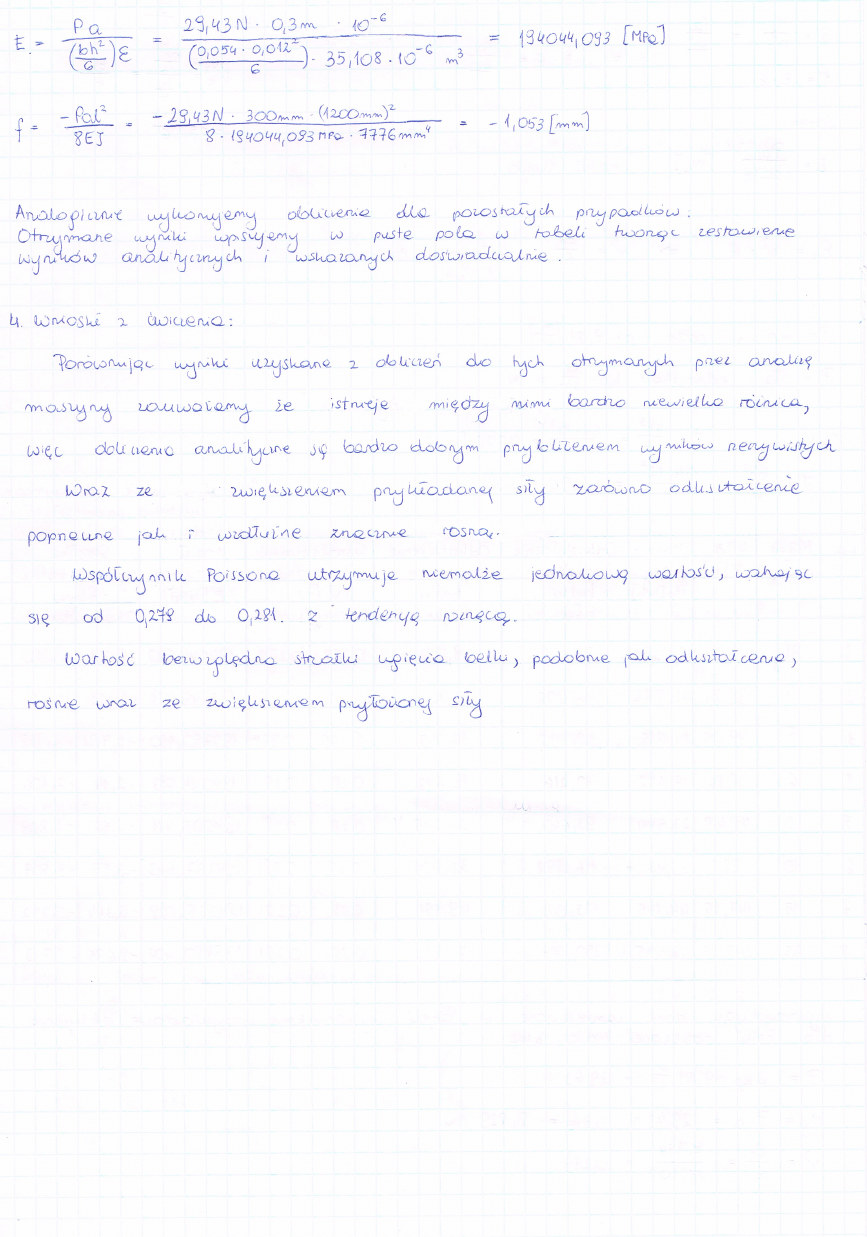 E = Pa / ((bh²/6)ε) = 29,43N · 0,3m · 10⁻⁶ / ((0,054 · 0,012²/6) · 35,108 · 10⁻⁶ m³) = 194044,093 [MPa]
f = -Pal² / 8EJ = -29,43N · 300mm · (1200mm)² / 8 · 194044,093 MPa · 7776mm⁴ = -1,053 [mm]
Analogicznie wykonujemy obliczenia dla pozostałych przypadków.
Otrzymane wyniki wpisujemy w puste pola w tabeli tworząc zestawienie
wyników analitycznych i wskazanych doświadczalnie.
4. Wnioski z ćwiczenia:
Porównując wyniki uzyskane z obliczeń do tych otrzymanych przez analizę
maszyny zauważamy że istnieje między nimi bardzo niewielka różnica,
więc obliczenia analityczne są bardzo dobrym przybliżeniem wyników rzeczywistych
Wraz ze zwiększeniem przykładanej siły zarówno odkształcenie
poprzeczne jak i wzdłużne znacznie rosną.
Współczynnik Poissona utrzymuje niemalże jednakową wartość, wahając
się od 0,279 do 0,281. z tendencją rosnącą.
Wartość bezwzględna strzałki ugięcia belki, podobnie jak odkształcenia,
rośnie wraz ze zwiększeniem przyłożonej siły